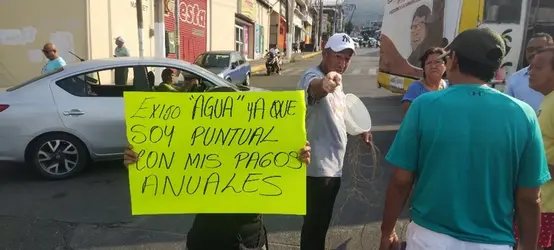 EXIGO "AGUA" YA QUE
SOY PUNTUAL
CON MIS PAGOS
ANUALES